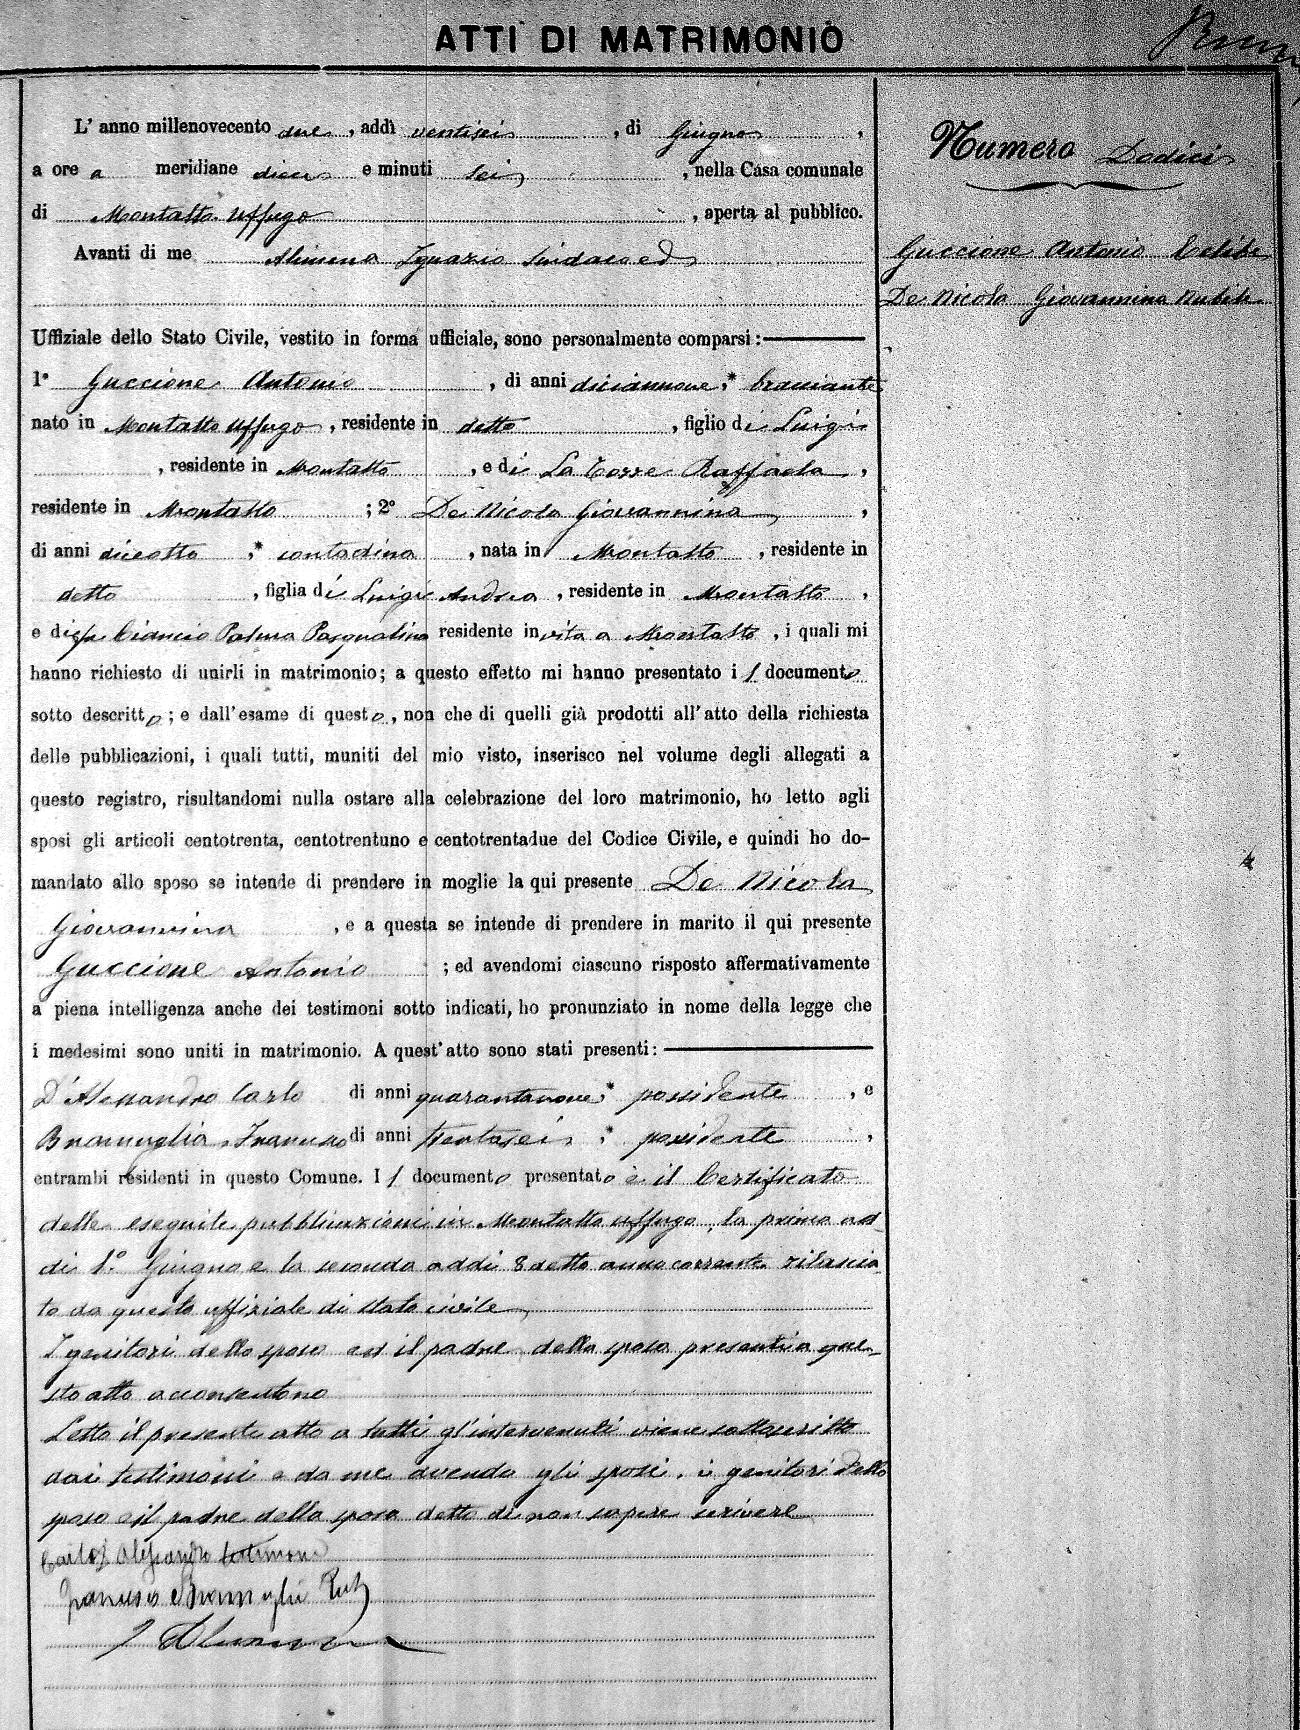 ATTI DI MATRIMONIO
L' anno millenovecento due, addì ventisei, di Giugno,
a ore a meridiane dieci e minuti sei, nella Casa comunale
di Montalto Uffugo, aperta al pubblico.
Avanti di me Alimena Ignazio Sindaco ed
Uffiziale dello Stato Civile, vestito in forma ufficiale, sono personalmente comparsi:
1° Guccione Antonio, di anni diciannove, * bracciante
nato in Montalto Uffugo, residente in detto, figlio di Luigi
, residente in Montalto, e di La Torre Raffaela,
residente in Montalto; 2° De Nicola Giovannina,
di anni diciotto, * contadina, nata in Montalto, residente in
detto, figlia di Luigi Andrea, residente in Montalto,
e di fu Ciancio Palma Pasqualina residente in vita a Montalto, i quali mi
hanno richiesto di unirli in matrimonio; a questo effetto mi hanno presentato i l documento
sotto descritto; e dall'esame di questo, non che di quelli già prodotti all'atto della richiesta
delle pubblicazioni, i quali tutti, muniti del mio visto, inserisco nel volume degli allegati a
questo registro, risultandomi nulla ostare alla celebrazione del loro matrimonio, ho letto agli
sposi gli articoli centotrenta, centotrentuno e centotrentadue del Codice Civile, e quindi ho do-
mandato allo sposo se intende di prendere in moglie la qui presente De Nicola
Giovannina, e a questa se intende di prendere in marito il qui presente
Guccione Antonio; ed avendomi ciascuno risposto affermativamente
a piena intelligenza anche dei testimoni sotto indicati, ho pronunziato in nome della legge che
i medesimi sono uniti in matrimonio. A quest'atto sono stati presenti:
D'Alessandro Carlo di anni quarantanove, * possidente, e
Bramuglia Francesco di anni trentasei, * possidente,
entrambi residenti in questo Comune. I l documento presentato è il Certificato
delle eseguite pubblicazioni in Montalto Uffugo, la prima ad
di 1° Giugno e la seconda addi 8 detto anno corrente rilascia
to da questo uffiziale di stato civile
I genitori dello sposo ed il padre della sposa presenti a que-
sto atto acconsentono
Letto il presente atto a tutti gl'intervenuti viene sottoscritto
dai testimoni e da me avendo gli sposi, i genitori dello
sposo e il padre della sposa detto di non sapere scrivere
Carlo d'Alessandro testimone
Francesco Bramuglia
I Alimena
Numero Dodici
Guccione Antonio Celibe
De Nicola Giovannina Nubile